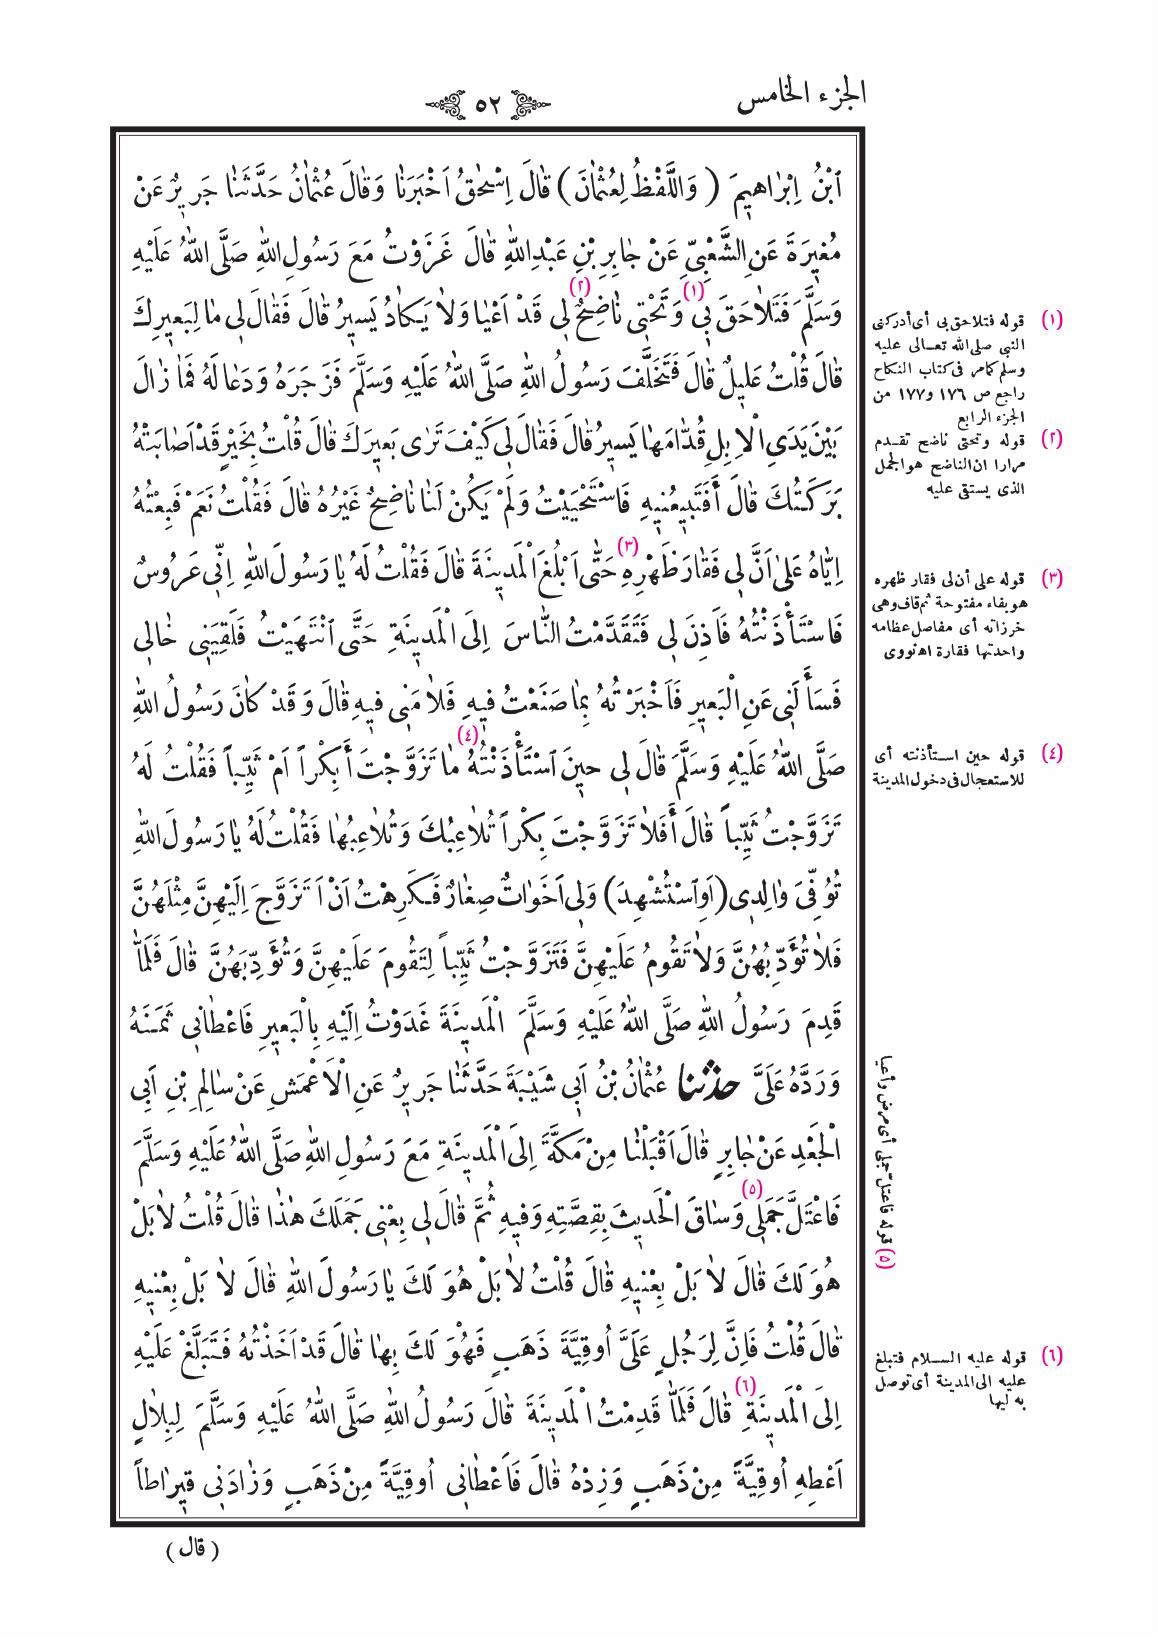 الجزء الخامس
٥٢
ٱبْنُ اِبْرٰاهيمَ ( وَاللَّفْظُ لِعُثْمٰانَ ) قٰالَ اِسْحٰقُ اَخْبَرَنٰا وَقٰالَ عُثْمٰانُ حَدَّثَنٰا جَريرٌ عَنْ
مُغيرَةَ عَنِ الشَّعْبِيِّ عَنْ جٰابِرِ بْنِ عَبْدِ اللّٰهِ قٰالَ غَزَوْتُ مَعَ رَسُولِ اللّٰهِ صَلَّى اللّٰهُ عَلَيْهِ
وَسَلَّمَ فَتَلاٰحَقَ بي (١) وَتَحْتي نٰاضِحٌ (٢) لي قَدْ اَعْيٰا وَلاٰ يَكٰادُ يَسيرُ قٰالَ فَقٰالَ لي مٰا لِبَعيرِكَ
قٰالَ قُلْتُ عَليلٌ قٰالَ فَتَخَلَّفَ رَسُولُ اللّٰهِ صَلَّى اللّٰهُ عَلَيْهِ وَسَلَّمَ فَزَجَرَهُ وَدَعٰا لَهُ فَمٰا زٰالَ
بَيْنَ يَدَيِ الْاِبِلِ قُدّٰامَهٰا يَسيرُ قٰالَ فَقٰالَ لي كَيْفَ تَرٰى بَعيرَكَ قٰالَ قُلْتُ بِخَيْرٍ قَدْ اَصٰابَتْهُ
بَرَكَتُكَ قٰالَ أَفَتَبيعُنيهِ فَاسْتَحْيَيْتُ وَلَمْ يَكُنْ لَنٰا نٰاضِحٌ غَيْرُهُ قٰالَ فَقُلْتُ نَعَمْ فَبِعْتُهُ
اِيّٰاهُ عَلىٰ اَنَّ لي فَقٰارَ ظَهْرِهِ (٣) حَتّٰى اَبْلُغَ الْمَدينَةَ قٰالَ فَقُلْتُ لَهُ يٰا رَسُولَ اللّٰهِ اِنّي عَرُوسٌ
فَاسْتَأْذَنْتُهُ فَاَذِنَ لي فَتَقَدَّمْتُ النّٰاسَ اِلَى الْمَدينَةِ حَتَّى ٱنْتَهَيْتُ فَلَقِيَني خٰالي
فَسَأَلَني عَنِ الْبَعيرِ فَاَخْبَرْتُهُ بِمٰا صَنَعْتُ فيهِ فَلاٰمَني فيهِ قٰالَ وَقَدْ كٰانَ رَسُولُ اللّٰهِ
صَلَّى اللّٰهُ عَلَيْهِ وَسَلَّمَ قٰالَ لي حينَ ٱسْتَأْذَنْتُهُ (٤) مٰا تَزَوَّجْتَ أَبِكْراً اَمْ ثَيِّباً فَقُلْتُ لَهُ
تَزَوَّجْتُ ثَيِّباً قٰالَ أَفَلاٰ تَزَوَّجْتَ بِكْراً تُلاٰعِبُكَ وَتُلاٰعِبُهٰا فَقُلْتُ لَهُ يٰا رَسُولَ اللّٰهِ
تُوُفِّيَ وٰالِدي (اَوِ ٱسْتُشْهِدَ) وَلي اَخَوٰاتٌ صِغٰارٌ فَكَرِهْتُ اَنْ اَتَزَوَّجَ اِلَيْهِنَّ مِثْلَهُنَّ
فَلاٰ تُؤَدِّبُهُنَّ وَلاٰ تَقُومُ عَلَيْهِنَّ فَتَزَوَّجْتُ ثَيِّباً لِتَقُومَ عَلَيْهِنَّ وَتُؤَدِّبَهُنَّ قٰالَ فَلَمّٰا
قَدِمَ رَسُولُ اللّٰهِ صَلَّى اللّٰهُ عَلَيْهِ وَسَلَّمَ الْمَدينَةَ غَدَوْتُ اِلَيْهِ بِالْبَعيرِ فَاَعْطٰاني ثَمَنَهُ
وَرَدَّهُ عَلَيَّ حدّثنا عُثْمٰانُ بْنُ اَبي شَيْبَةَ حَدَّثَنٰا جَريرٌ عَنِ الْاَعْمَشِ عَنْ سٰالِمِ بْنِ اَبي
الْجَعْدِ عَنْ جٰابِرٍ قٰالَ اَقْبَلْنٰا مِنْ مَكَّةَ اِلَى الْمَدينَةِ مَعَ رَسُولِ اللّٰهِ صَلَّى اللّٰهُ عَلَيْهِ وَسَلَّمَ
فَاعْتَلَّ جَمَلي (٥) وَسٰاقَ الْحَديثَ بِقِصَّتِهِ وَفيهِ ثُمَّ قٰالَ لي بِعْني جَمَلَكَ هٰذٰا قٰالَ قُلْتُ لاٰ بَلْ
هُوَ لَكَ قٰالَ لاٰ بَلْ بِعْنيهِ قٰالَ قُلْتُ لاٰ بَلْ هُوَ لَكَ يٰا رَسُولَ اللّٰهِ قٰالَ لاٰ بَلْ بِعْنيهِ
قٰالَ قُلْتُ فَاِنَّ لِرَجُلٍ عَلَيَّ اُوقِيَّةَ ذَهَبٍ فَهُوَ لَكَ بِهٰا قٰالَ قَدْ اَخَذْتُهُ فَتَبَلَّغْ عَلَيْهِ
اِلَى الْمَدينَةِ (٦) قٰالَ فَلَمّٰا قَدِمْتُ الْمَدينَةَ قٰالَ رَسُولُ اللّٰهِ صَلَّى اللّٰهُ عَلَيْهِ وَسَلَّمَ لِبِلاٰلٍ
اَعْطِهِ اُوقِيَّةً مِنْ ذَهَبٍ وَزِدْهُ قٰالَ فَاَعْطٰاني اُوقِيَّةً مِنْ ذَهَبٍ وَزٰادَني قيرٰاطاً
( قال )
(١) قوله فتلاحق بى أى أدركنى
النبى صلى الله تعالى عليه
وسلم كمامر فى كتاب النكاح
راجع ص ١٧٦ و١٧٧ من
الجزء الرابع
(٢) قوله وتحتى ناضح تقدم
مرارا ان الناضح هو الجمل
الذى يستقى عليه
(٣) قوله على أن لى فقار ظهره
هو بفاء مفتوحة ثم قاف وهى
خرزاته أى مفاصل عظامه
واحدتها فقارة اه نووى
(٤) قوله حين استأذنته أى
للاستعجال فى دخول المدينة
(٥) قوله فاعتل جملى أى مرض وأعيا
(٦) قوله عليه السلام فتبلغ
عليه الى المدينة أى توصل
به اليها